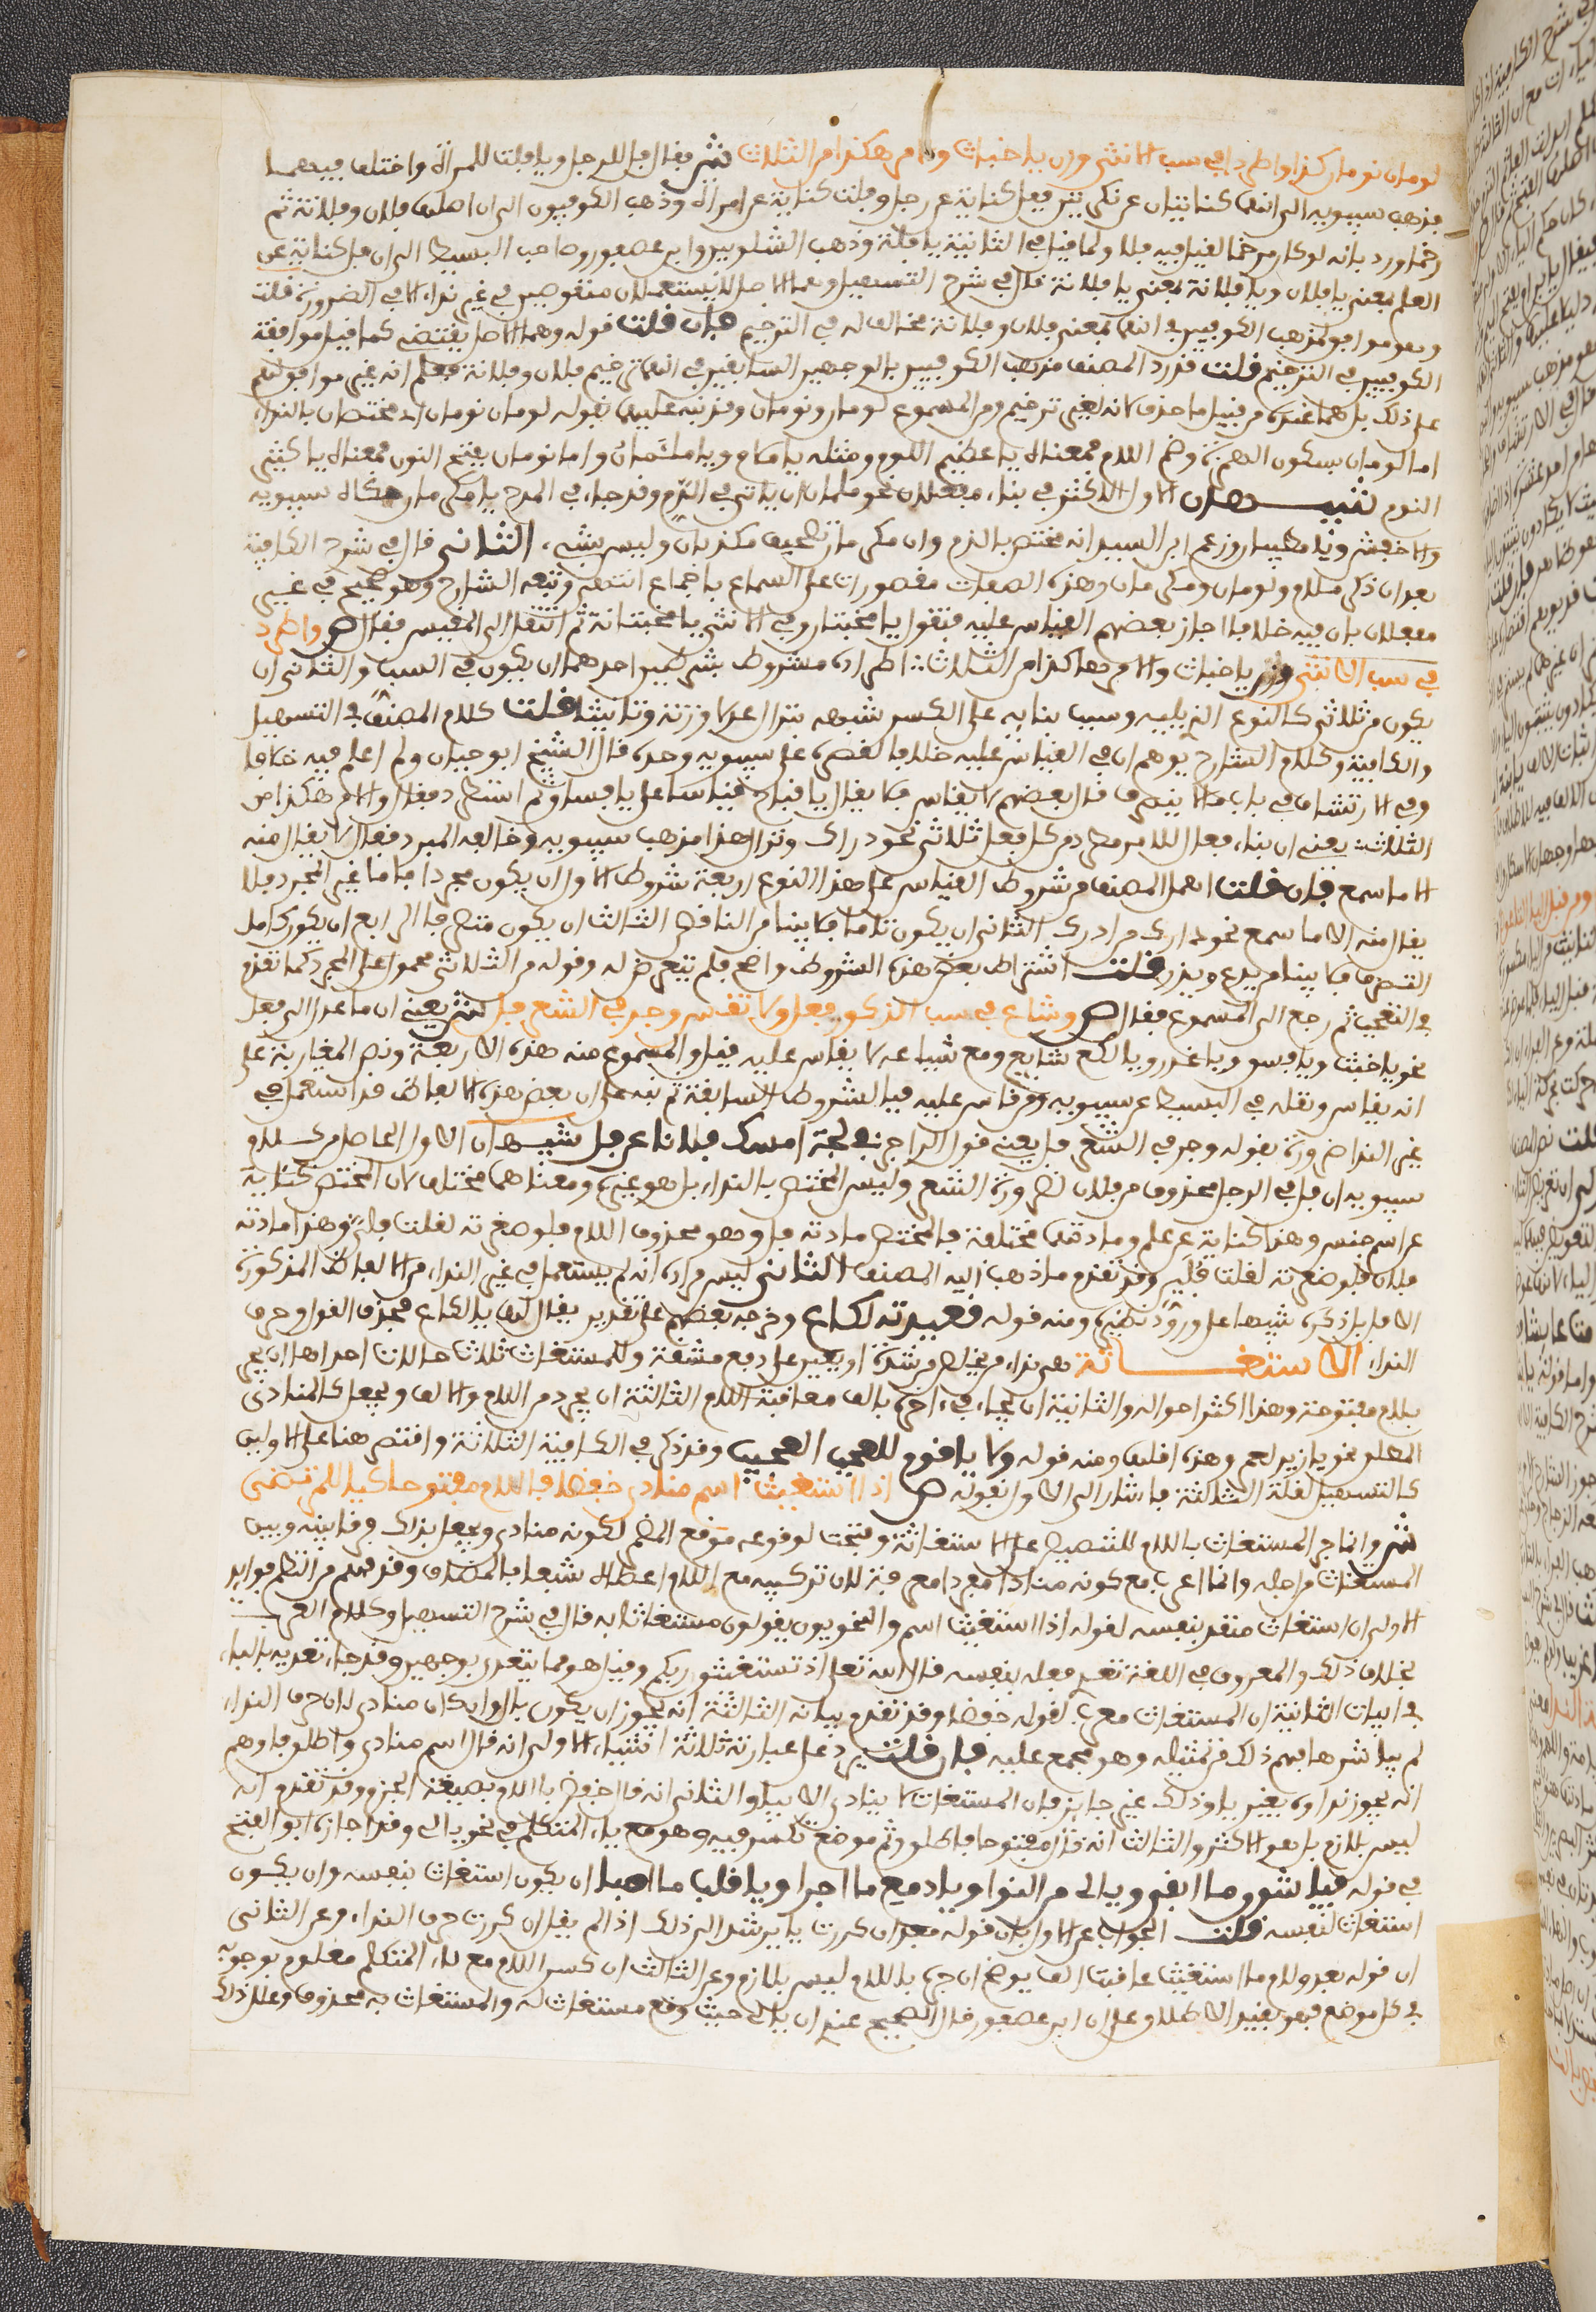 لومان نومان كذا واطردا في سب الانثى وزن يا خباث والامر هكذا من الثلاث ش يقال يا فل للرجل ويا فلة للمرأة واختلف فيهما
فذهب سيبويه الى انهما كنايتان عن نكرتين ففل كناية عن رجل وفلة كناية عن امرأة وذهب الكوفيون الى ان اصلهما فلان وفلانة ثم
رخما ورد بانه لو كان مرخما لقيل فيه فلا ولما قيل في التانية يا فلة وذهب الشلوبين وابن عصفور وصاحب البسيط الى ان فل كناية عن
العلم بمعنى يا فلان ويا فلة بمعنى يا فلانة قال في شرح التسهيل وهما الاصل فلا يستعملان منقوصين في غير نداء الا في الضرورة قلت
وهو موافق لمذهب الكوفيين في انهما بمعنى فلان وفلانة مخالف له في الترخيم فان قلت قوله وهما الاصل يقتضي كما قيل موافقة
الكوفيين في الترخيم قلت قد رد المصنف مذهب الكوفيين بالوجهين السابقين في انهما ترخيم فلان وفلانة فعلم انه غير موافق لهم
على ذلك بل هما عنده من قبيل ما حذف لانه لغير ترخيم ومن المسموع لومان ونومان وقد نبه عليهما بقوله لومان نومان اي مختصان بالنداء
اما لومان بسكون الهمزة وضم اللام فمعناه يا عظيم اللوم ومثله يا ملام ويا ملأمان واما نومان بفتح النون فمعناه يا كثير
النوم تنبيهان الاول الاكثر في بناء مفعلان نحو ملأمان ان ياتي في الذم وقد جاء في المدح يا مكرمان حكاه سيبويه
والاخفش ويا مطيبان وزعم ابن السيد انه مختص بالذم وان مكرمان تصحيف مكذبان وليس بشيء الثاني قال في شرح الكافية
بعد ان ذكر ملام ولومان ومكرمان وهذه الصفات مقصورات على السماع باجماع انتهى وتبعه الشارح وهو صحيح في غير
مفعلان فان فيه خلافا اجاز بعضهم القياس عليه فتقول يا مخبثان وفي الانثى يا مخبثانة ثم انتقل الى المقيس فقال ص واطردا
في سب الانثى وزن يا خباث والامر هكذا من الثلاث ش اطراده مشروط بشرطين احدهما ان يكون في السب والثاني ان
يكون من ثلاثي كالنوع الذي يليه وسبب بنايه على الكسر شبهه بنزال عدلا وزنة وتانيثا قلت كلام المصنف في التسهيل
والكافية وكلام الشارح يوهم ان في القياس عليه خلافا لقصره على سيبويه وحده قال الشيخ ابو حيان ولم اعلم فيه خلافا
وفي الارتشاف في باب ما لا ينصرف قال بعضهم لا يقاس فلا يقال يا قباح قياسا على يا فساق ثم استطرد فقال والامر هكذا من
الثلاث يعني ان بناء فعال للامر مطرد من كل فعل ثلاثي نحو دراك ونزال هذا مذهب سيبويه وخالفه المبرد فقال لا يقال منه
الا ما سمع فان قلت اهمل المصنف من شروط القياس على هذا النوع اربعة شروط الاول ان يكون مجردا فاما غير المجرد فلا
يقال منه الا ما سمع نحو دراك من ادرك الثاني ان يكون تاما فلا يبنا من الناقص الثالث ان يكون متصرفا الرابع ان يكون كامل
التصرف فلا يبنا من يدع ويذر قلت اشتراط بعض هذه الشروط واضح فلم يتعرض له وقوله من الثلاثي محمول على المجرد كما تقدم
في التعجب ثم رجع الى المسموع فقال ص وشاع في سب الذكور فعل ولا تقس وجر في الشعر فل ش يعني ان ما عدل الى فعل
نحو يا خبث ويا فسق ويا غدر ويا لكع شايع ومع شياعه لا يقاس عليه قيل والمسموع منه هذه الاربعة ونص المغاربة على
انه يقاس ونقله في البسيط عن سيبويه ومن قاس عليه فبالشروط السابقة ثم نبه على ان بعض هذه الالفاظ قد استعمل في
غير النداء ضرورة بقوله وجر في الشعر فل يعني قول الراجز في لجة امسك فلانا عن فل تنبيهان الاول الحاصل من كلام
سيبويه ان فل في الرجز محذوف من فلان لضرورة الشعر وليس المختص بالنداء بل هو غيره ومعناهما مختلف لان المختص كناية
عن اسم جنس وهذا كناية عن علم ومادتهما مختلفة فالمختص مادته ف ل ي وهو محذوف اللام فلو صغرته لقلت فلي وهذا مادته
فلن فلو صغرته لقلت فلين وقد تقدم ما ذهب اليه المصنف الثاني ليس مراده انه لم يستعمل في غير النداء من الالفاظ المذكورة
الا فل بل ذكره تنبيها على ورود نظيره ومنه قوله قعيدته لكاع وخرجه بعضهم على تقدير يقال لها يا لكاع فحذف القول وحرف
النداء الاستغاثة هي نداء من يخلص من شدة او يعين على دفع مشقة وللمستغاث ثلاث حالات احداها ان يجر
بلام مفتوحة وهذا اكثر احواله والثانية ان يجاء في اخره بالف معاقبة اللام الثالثة ان يجرد من اللام والالف ويجعل كالمنادى
المطلق نحو يا زيد لعمرو وهذه اقلها ومنه قوله الا يا قوم للعجب العجيب وقد ذكر في الكافية الثلاثة واقتصر هنا على الاوليين
كالتسهيل لقلة الثالثة فاشار الى الاول بقوله ص اذا استغيث اسم منادى خفضا باللام مفتوحا كيا للمرتضى
ش وانما جر المستغاث باللام للتنصيص على الاستغاثة وفتحت لوقوعه موقع المضمر لكونه منادى وليحصل بذلك فرق بينه وبين
المستغاث من اجله وانما اعرب مع كونه منادا مفردا معرفة لان تركيبه مع اللام اعطاه شبها بالمضاف وقد فهم من النظم فوايد
الاولى ان استغاث متعد بنفسه لقوله اذا استغيث اسم والنحويون يقولون مستغاث به قال في شرح التسهيل وكلام العرب
بخلاف ذلك والمعروف في اللغة تعدي فعله بنفسه قال الله تعالى اذ تستغيثون ربكم وقيل هو مما يتعدى بوجهين وقد جاء تعديه بالباء
في ابيات الثانية ان المستغاث معرب لقوله خفضا وقد تقدم بيانه الثالثة انه يجوز ان يكون بال وان كان منادى لان حرف النداء
لم يباشرها فهم ذلك من تمثيله وهو مجمع عليه فان قلت يرد على عبارته ثلاثة اشياء الاول انه قال اسم منادى واطلق فاوهم
انه يجوز نداوه بغير يا وذلك غير جايز فان المستغاث لا ينادى الا بيا والثاني انه قال خفض باللام بصيغة الجزم وقد تقدم انه
ليس بلازم بل هو الاكثر والثالث انه قال مفتوحا فاطلق وثم موضع تكسر فيه وهو مع ياء المتكلم في نحو يا لي وقد اجاز ابو الفتح
في قوله فيا شوق ما ابقى ويا لي من النوا ويا دمع ما اجرا ويا قلب ما اصبا ان يكون استغاث بنفسه وان يكون
استغاث لنفسه قلت الجواب عن الاول بان قوله بعد ان كررت يا يرشد الى ذلك اذ لم يقل ان كررت حرف النداء وعن الثاني
ان قوله بعد ولام ما استغيث عاقبت الف يوضح ان جره باللام ليس بلازم وعن الثالث ان كسر اللام مع ياء المتكلم معلوم بوجوبه
في كل موضع فهو يقيد الاطلاق على ان ابن عصفور قال الصحيح عندي ان يا لي حيث وقع مستغاث له والمستغاث به محذوف وعلل ذلك